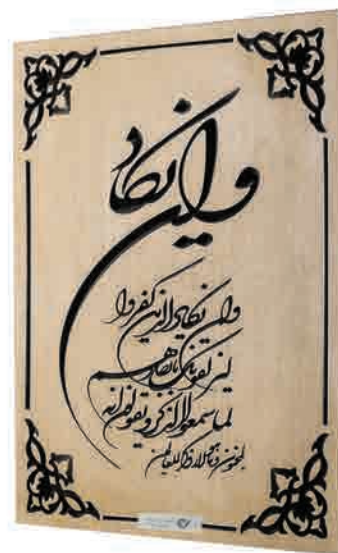 وان یکاد
وان یکاد الذین کفروا
لیزلقونک بابصارهم
لما سمعوا الذکر و یقولون انه
لمجنون و ما هو الا ذکر للعالمین